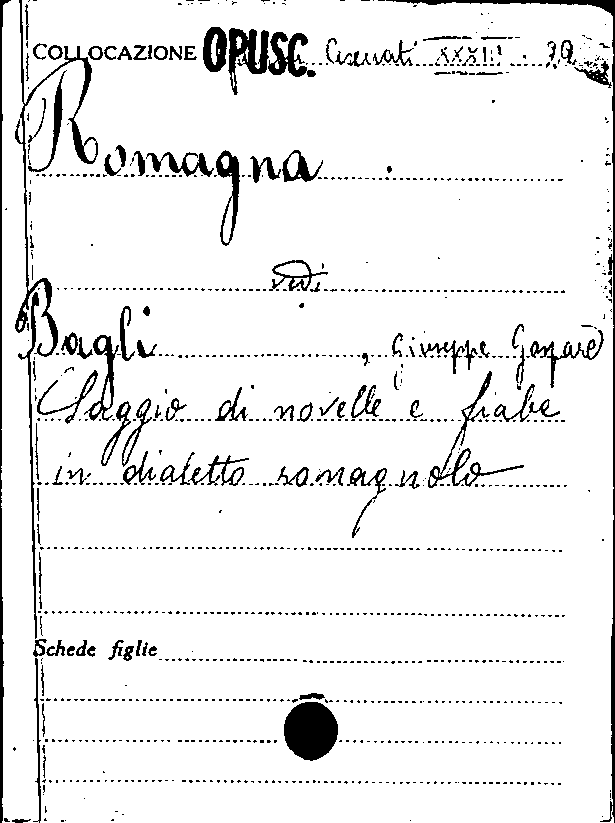 COLLOCAZIONE OPUSC. XXXIII . 30
Romagna .
vedi
Bagli , Giuseppe Gaspare
Saggio di novelle e fiabe
in dialetto romagnolo
Schede figlie